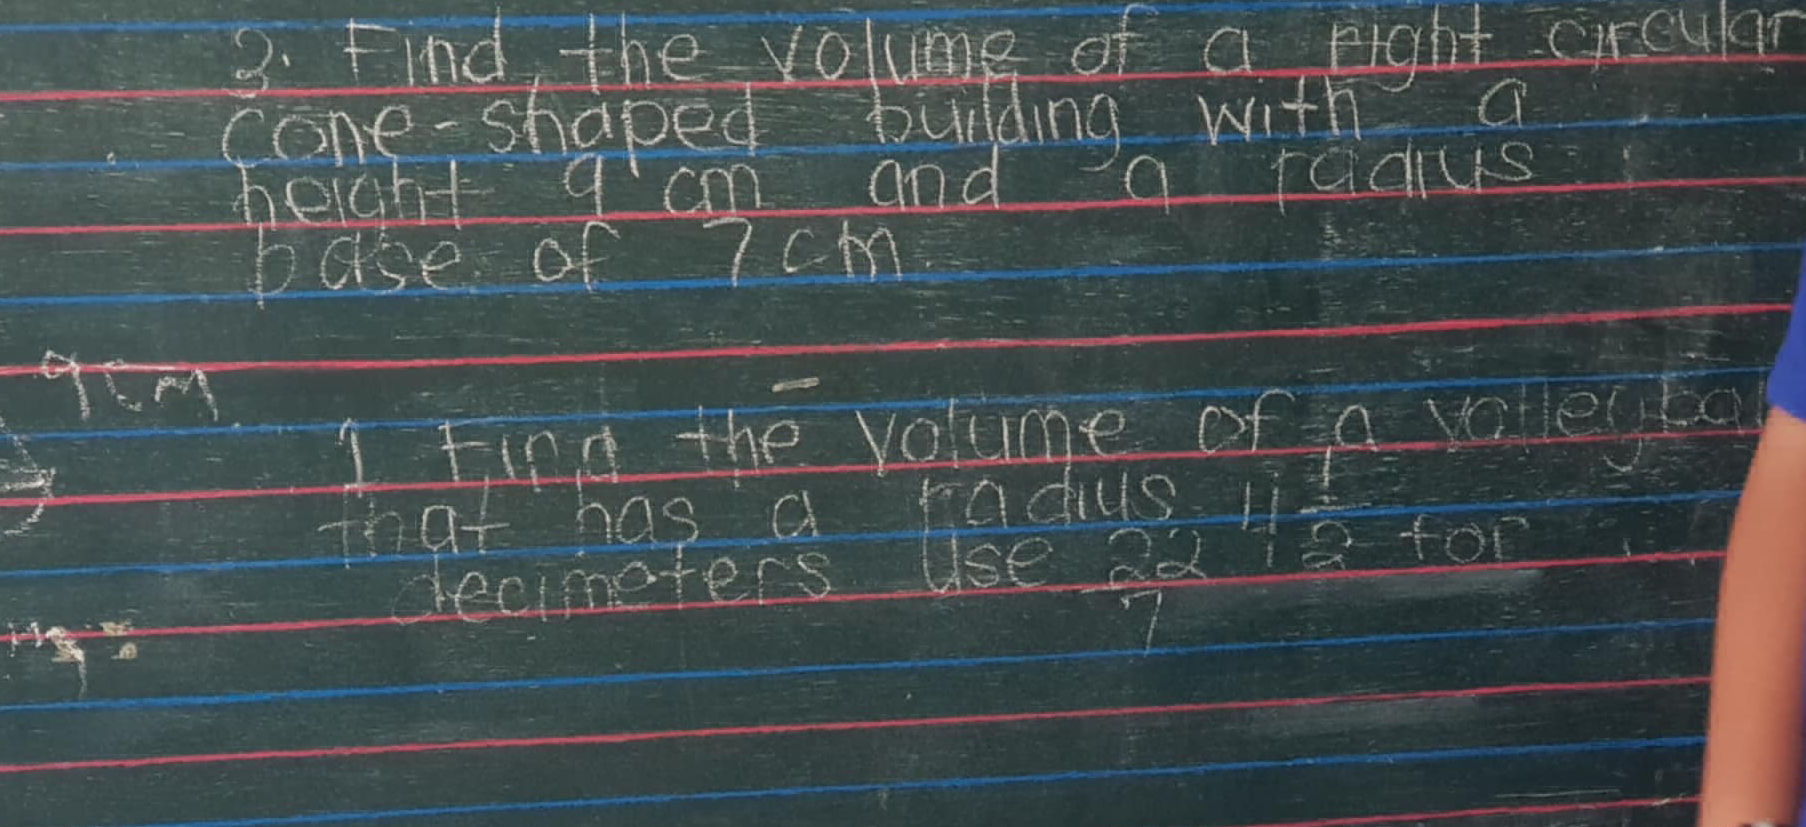 3. Find the volume of a right circular
cone-shaped building with a
height 9 cm and a radius
base of 7cm.
9cm
1 Find the volume of a volleybal
that has a radius 4 1/2
decimeters Use 22/7 for